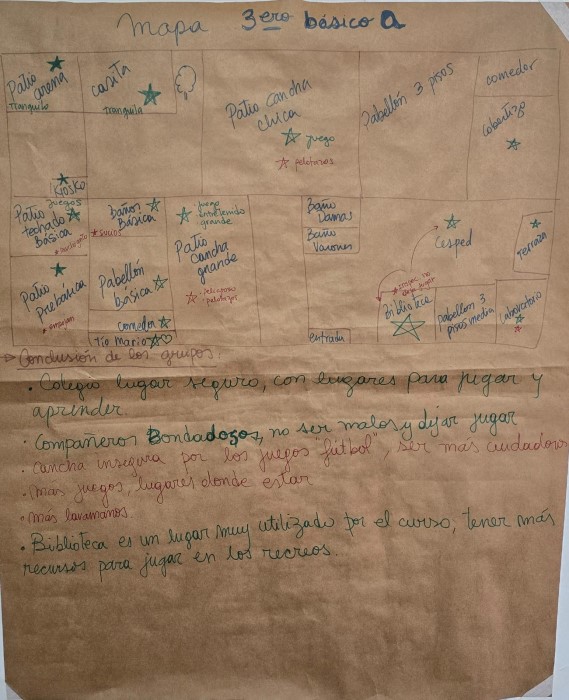 Mapa 3ero básico A
Patio arena
Tranquilo
casita
tranquila
Patio cancha chica
juego
pelotazos
Pabellón 3 pisos
comedor
cobertizo
Kiosko
Patio techado Básica
juegos
baños Básica
sucios
juego entretenido grande
Patio cancha grande
peligroso pelotazos
Baño Damas
Baño Varones
Cesped
terraza
Patio Prebásica
Pabellón básica
comedor
Tío Mario
entrada
Biblioteca
Pabellon 3 pisos media
Laboratorio
Conclusión de los grupos:
• Colegio lugar seguro, con lugares para jugar y
aprender.
• Compañeros Bondadosos, no ser malos y dejar jugar
• cancha insegura por los juegos "fútbol", ser más cuidadoros
• más juegos, lugares donde estar
• más lavamanos.
• Biblioteca es un lugar muy utilizado por el curso, tener más
recursos para jugar en los recreos.